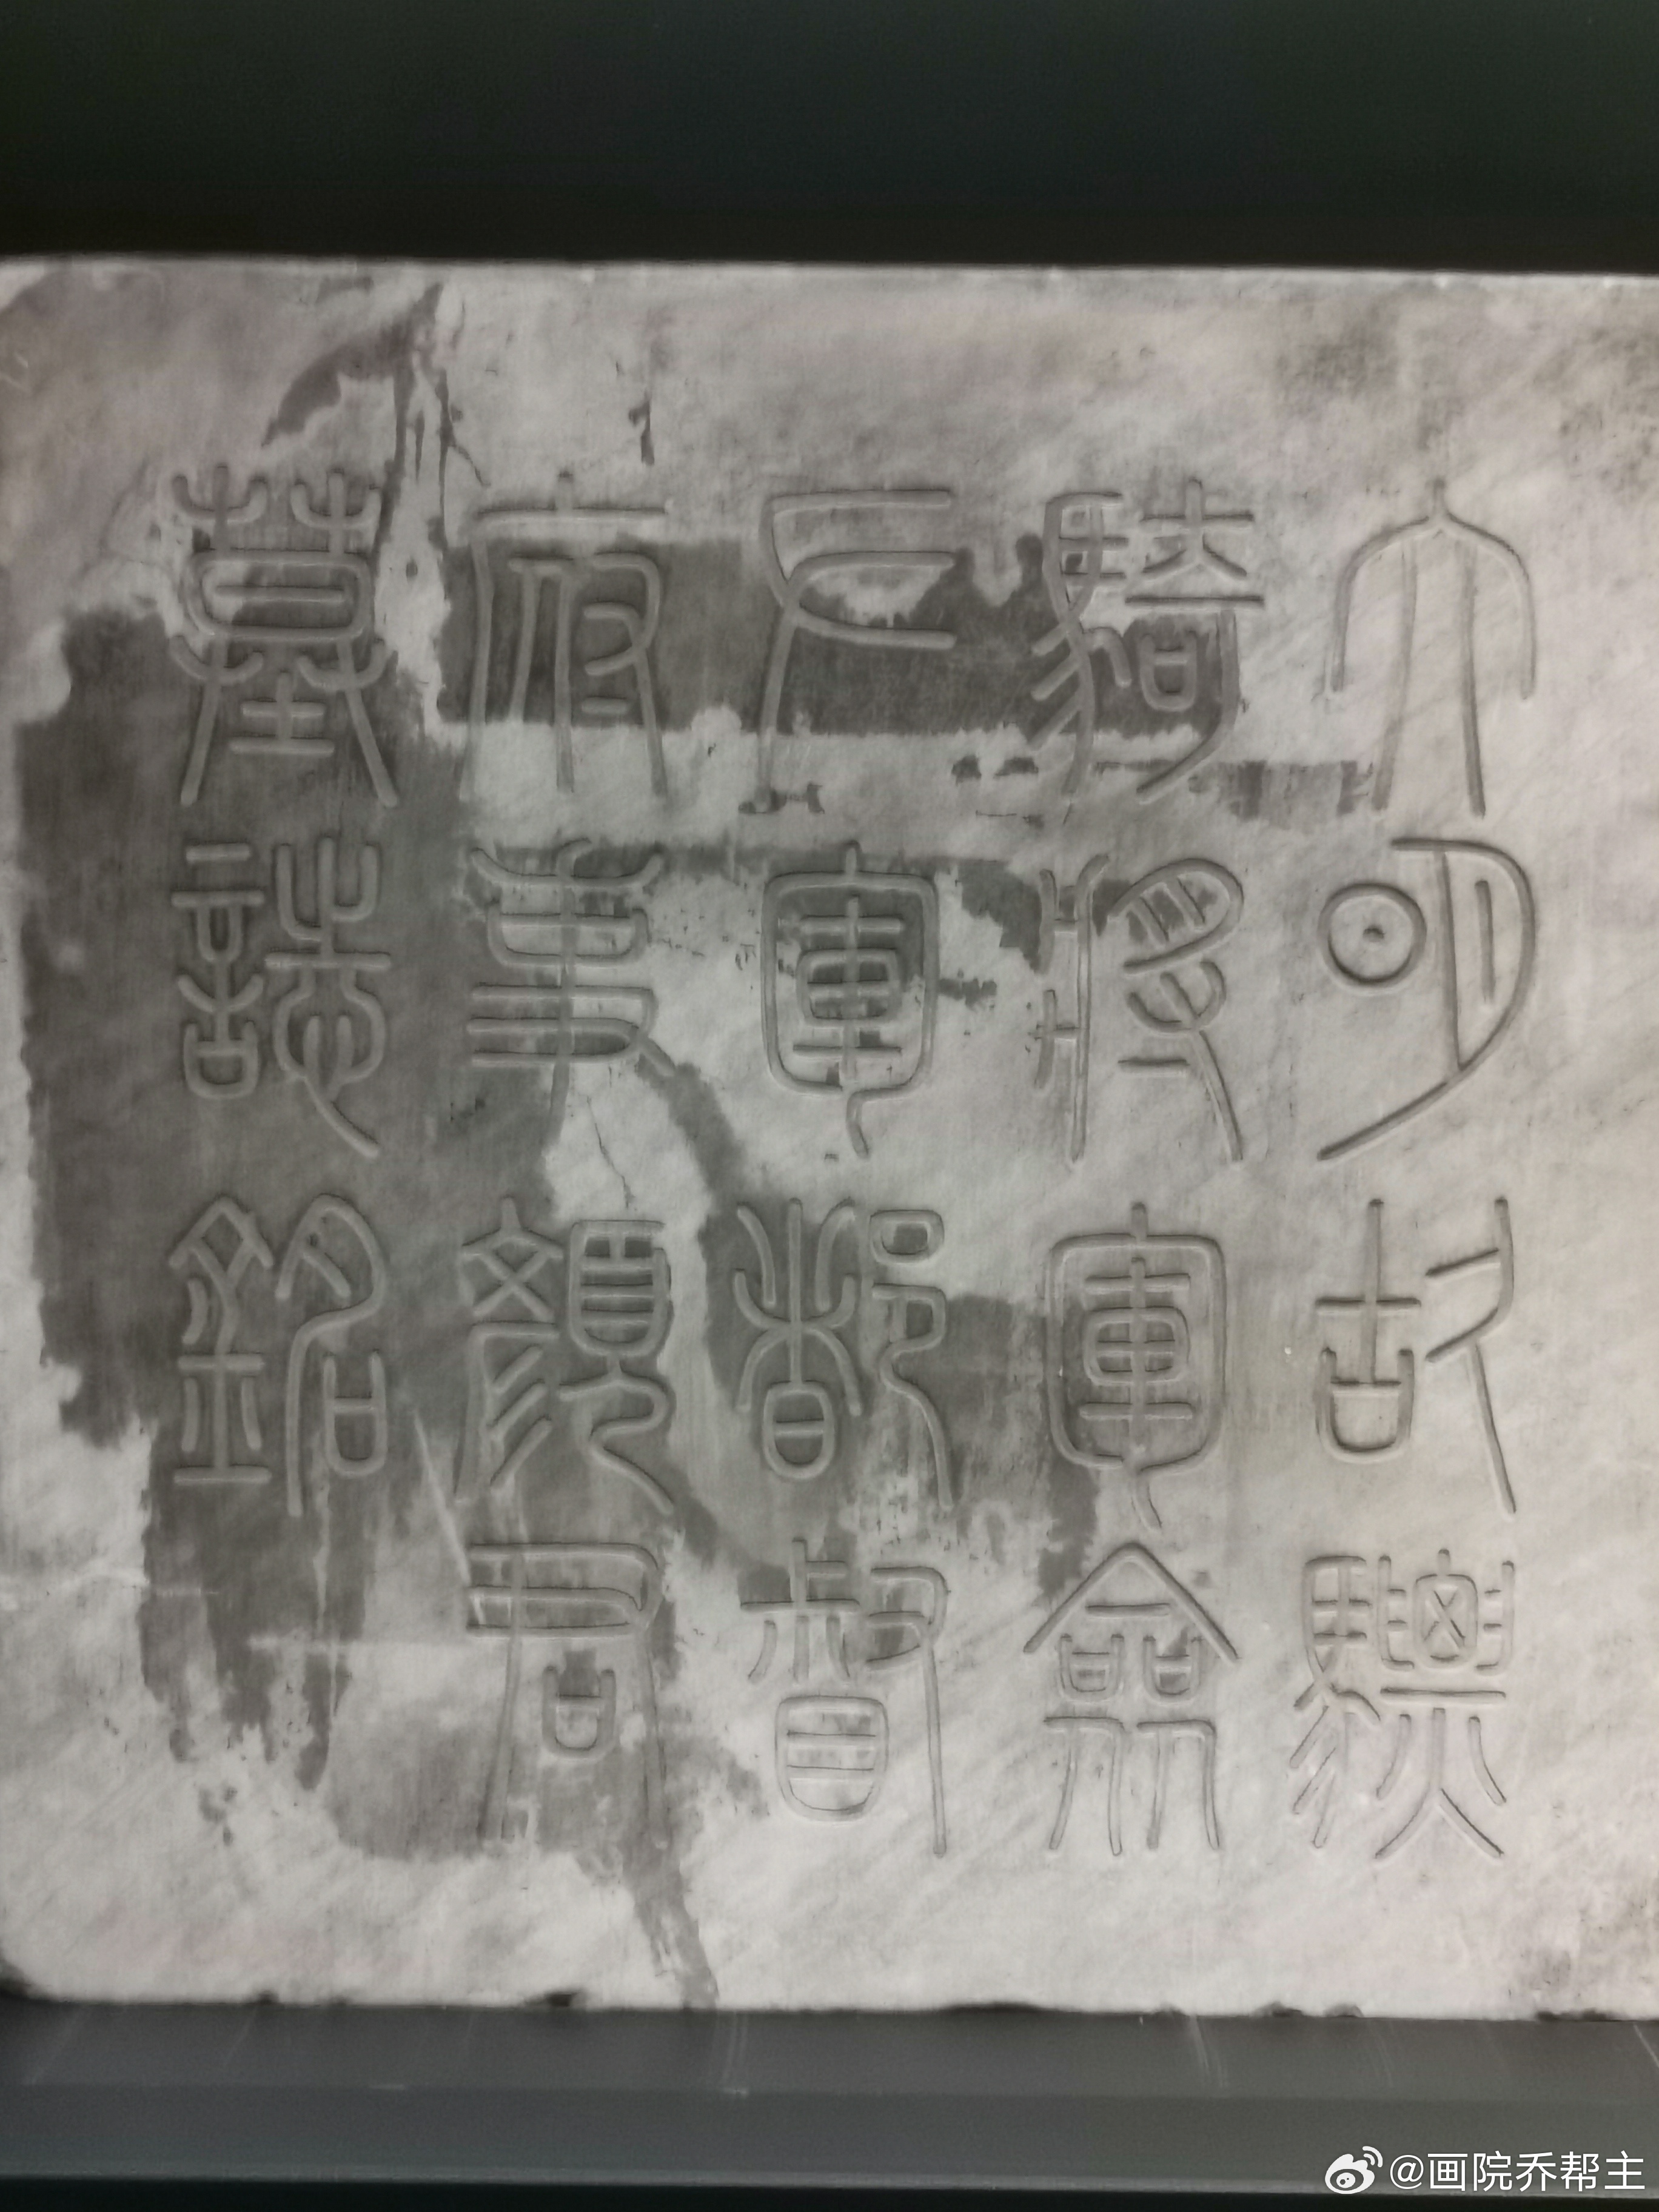 大明故驃
騎將軍僉
左軍都督
府事顏君
墓誌銘
@画院乔帮主